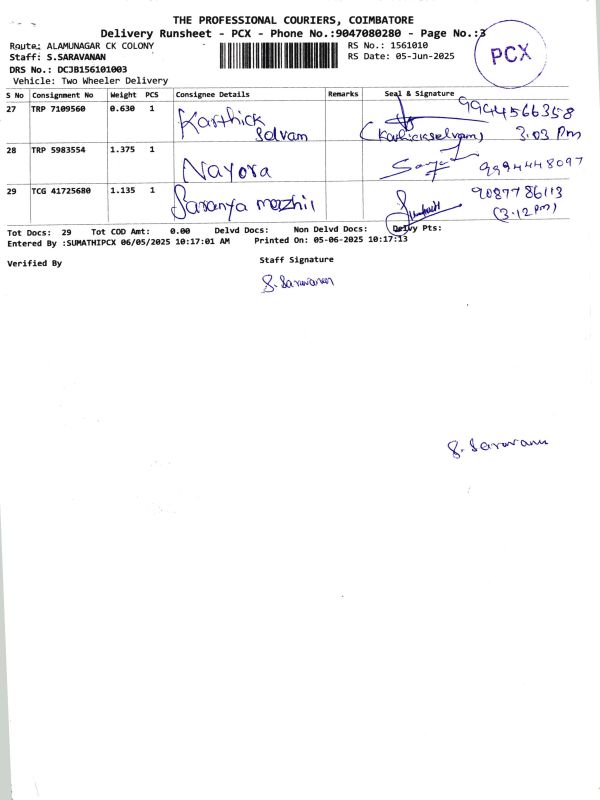 THE PROFESSIONAL COURIERS, COIMBATORE
Delivery Runsheet - PCX - Phone No.:9047080280 - Page No.:3
Route: ALAMUNAGAR CK COLONY
RS No.: 1561010
Staff: S.SARAVANAN
RS Date: 05-Jun-2025
DRS No.: DCJB156101003
Vehicle: Two Wheeler Delivery
PCX
S No Consignment No Weight PCS Consignee Details Remarks Seal & Signature
27 TRP 7109560 0.630 1 Karthick Selvam 9944566358
(Karthickselvam) 3.03 Pm
28 TRP 5983554 1.375 1 Nayora 9994448097
29 TCG 41725680 1.135 1 Saranya mozhil 9087786113
(3.12 pm)
Tot Docs: 29 Tot COD Amt: 0.00 Delvd Docs: Non Delvd Docs: Delvy Pts:
Entered By :SUMATHIPCX 06/05/2025 10:17:01 AM Printed On: 05-06-2025 10:17:13
Verified By
Staff Signature
S. Saravanan
S. Saravanan